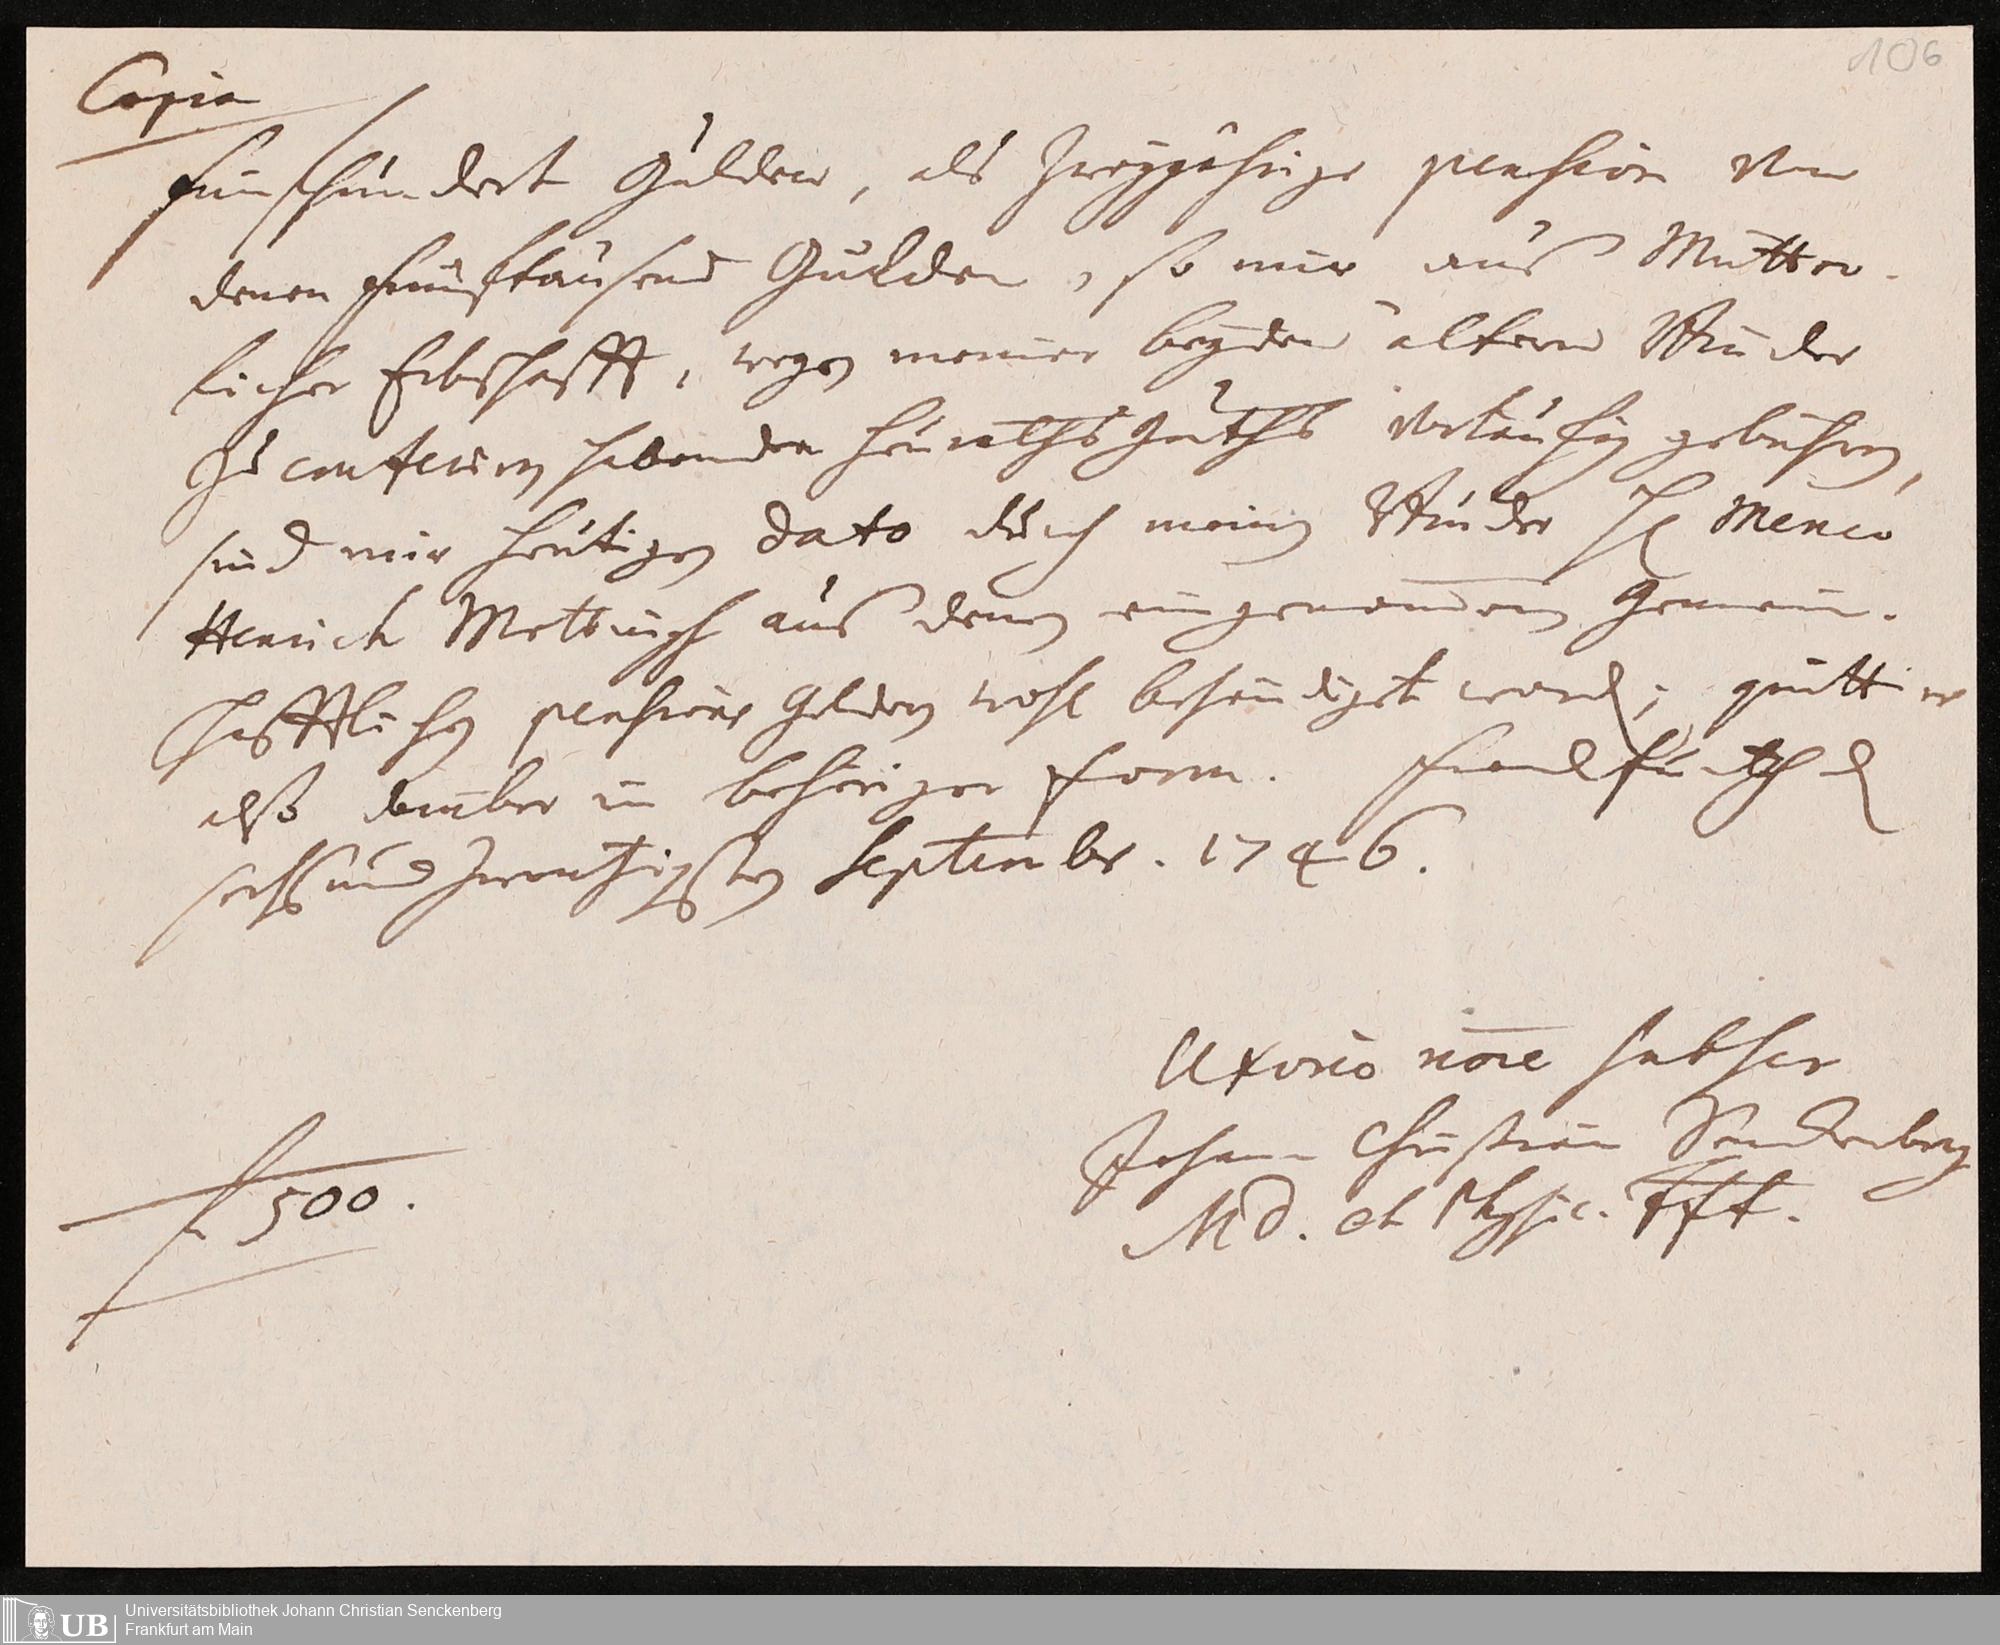 106
Copia
Fünfhundert Gulden, als zweyjährige pension von
denen fünfftausend Gulden, so mir aus Mütter-
licher Erbschafft, wegen meiner beyden ältern Brüder
zu conferiren habenden Heuraths guths vorläufig gebühren,
sind mir heutigen dato durch meinen Bruder H
Henrich Mettingh aus denen eingenommenen Gemein-
schafftlichen pensions Geldern wohl behändiget worden; quittire
also darüber in behöriger Form. Franckfurth d
sechs und zwantzigsten September. 1746.
Uxorio nōie subscr
Johann Christian Senckenberg
MD. et Physic. Fft.
f 500.
UB
Universitätsbibliothek Johann Christian Senckenberg
Frankfurt am Main